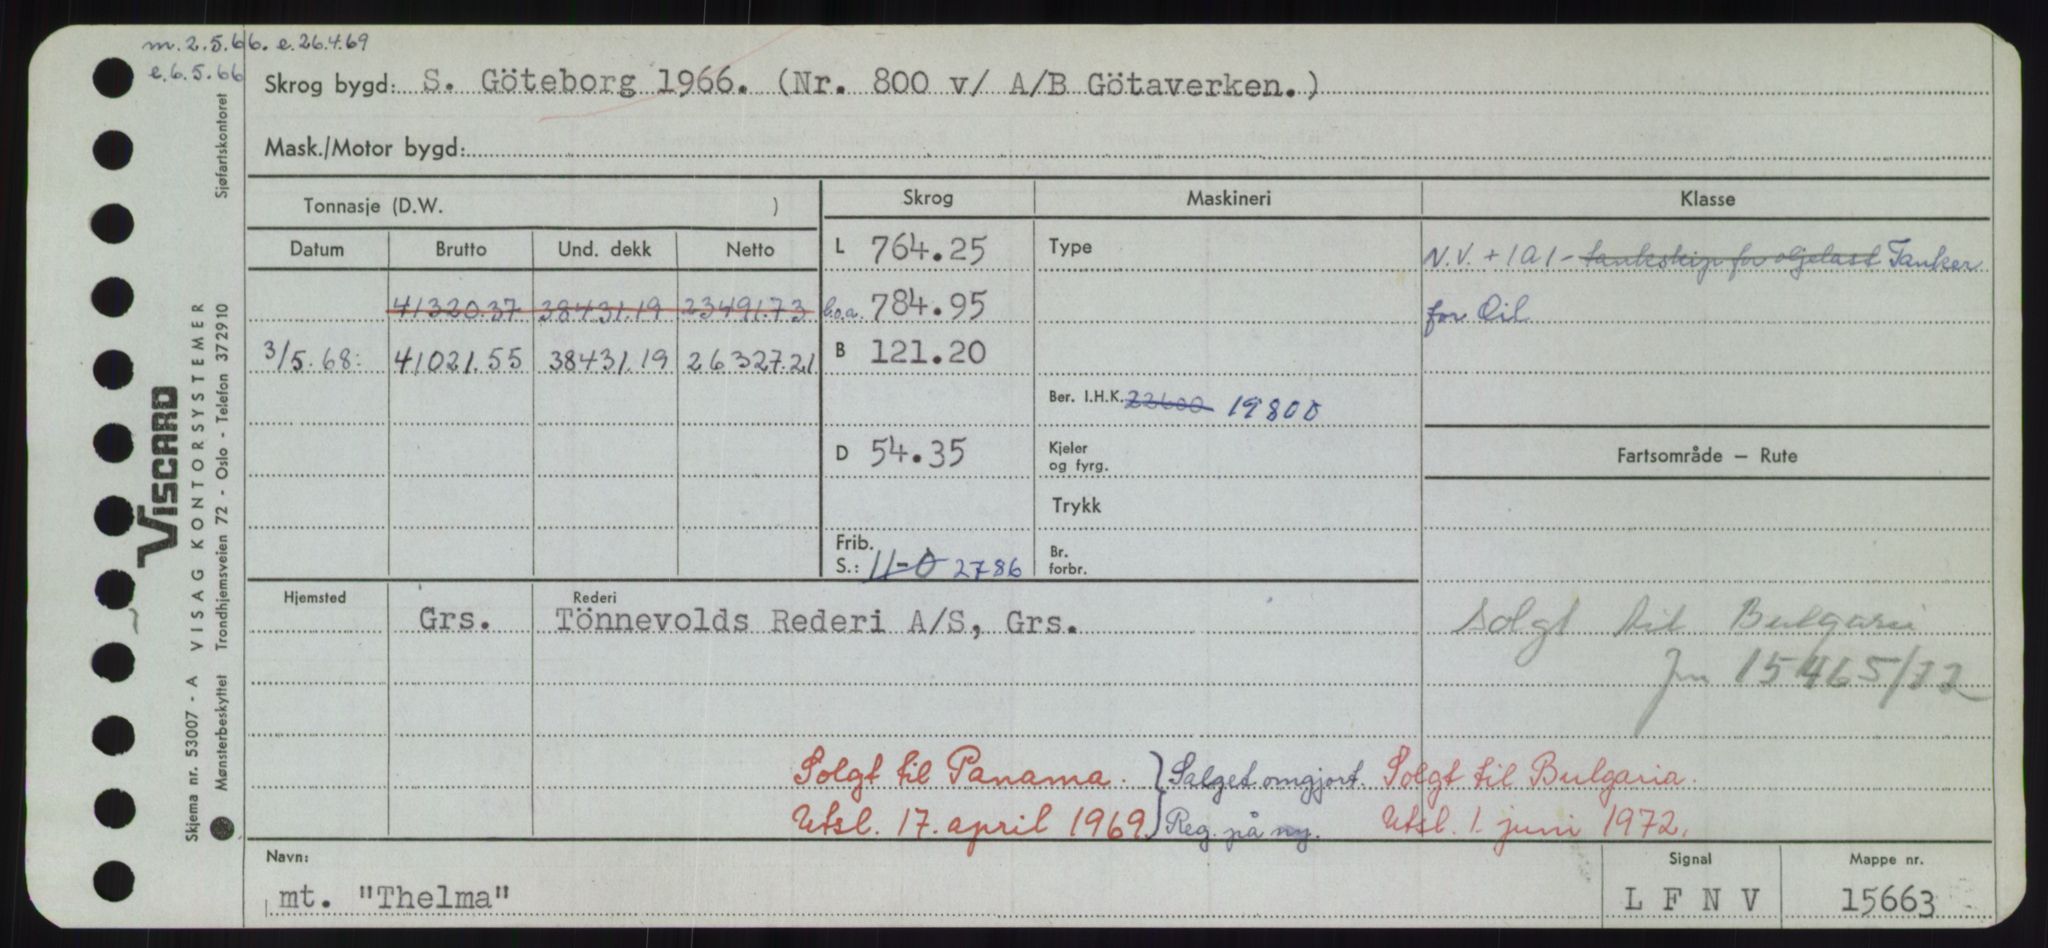 m. 2.5.66. e. 26.4.69
e. 6.5.66
Skrog bygd: S. Göteborg 1966. (Nr. 800 v/ A/B Götaverken.)
Mask./Motor bygd:
Tonnasje (D.W. )
Skrog
Maskineri
Klasse
Datum Brutto Und. dekk Netto
41320.37 38431.19 23491.73
3/5.68: 41021.55 38431.19 26327.21
L 764.25
l.o.a. 784.95
B 121.20
D 54.35
Frib.
S.: 11-0 2786
Type
Ber. I.H.K. 22600 19800
Kjeler
og fyrg.
Trykk
Br.
forbr.
N.V. + 1A1 - tankskip for oljelast Tanker
for Oil
Fartsområde — Rute
Hjemsted Rederi
Grs. Tönnevolds Rederi A/S, Grs.
Solgt til Bulgaria
Jnr 15465/72
Solgt til Panama. } Salget omgjort. Solgt til Bulgaria.
Utsl. 17. april 1969. Reg. på ny. Utsl. 1. juni 1972.
Navn: Signal Mappe nr.
mt. "Thelma" L F N V 15663
Skjema nr. 53007 - A VISAG KONTORSYSTEMER
VISCARD
Mønsterbeskyttet Trondhjemsveien 72 - Oslo - Telefon 372910 Sjøfartskontoret